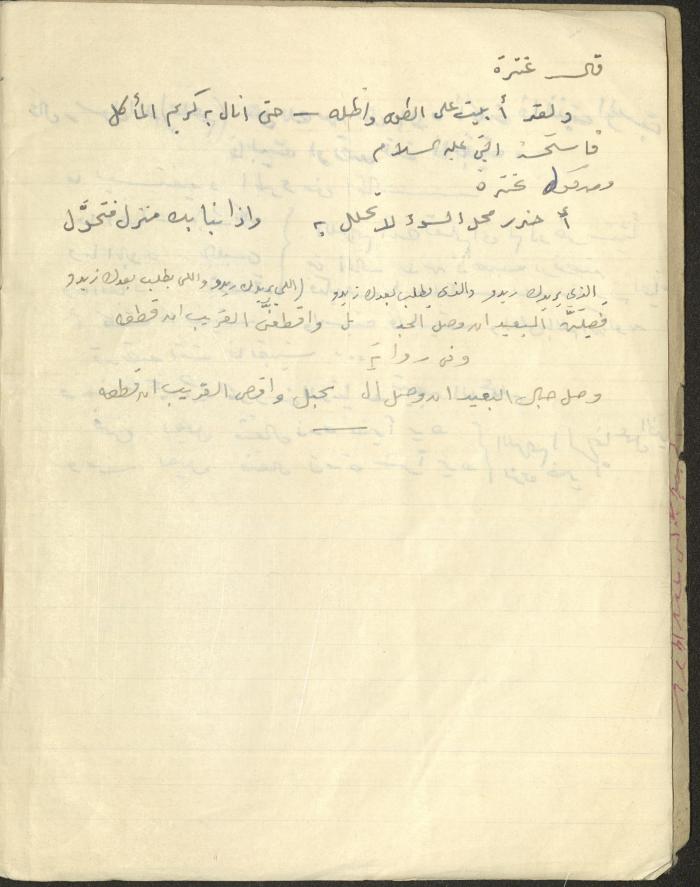 قال عنترة
ولقد أبيت على الطوى واظله – حتى انال به كريم المأكل
فاستحسنه النبي عليه السلام
ومن قول عنترة
أحذر محل السوء لا تحلل به واذا نبا بك منزل فتحوَّل
الذي يريدك ريدو والذي يطلب بعدك زيدو (اللي يريدك ريدو واللي يطلب بعدك زيدو
فصِلَنَّ البعيد ان وصل الحبـ ـل واقطعنَّ القريب ان قطعه
وفي رواية
وصل حبال البعيد ان وصل الـ ـحبل واقص القريب ان قطعه